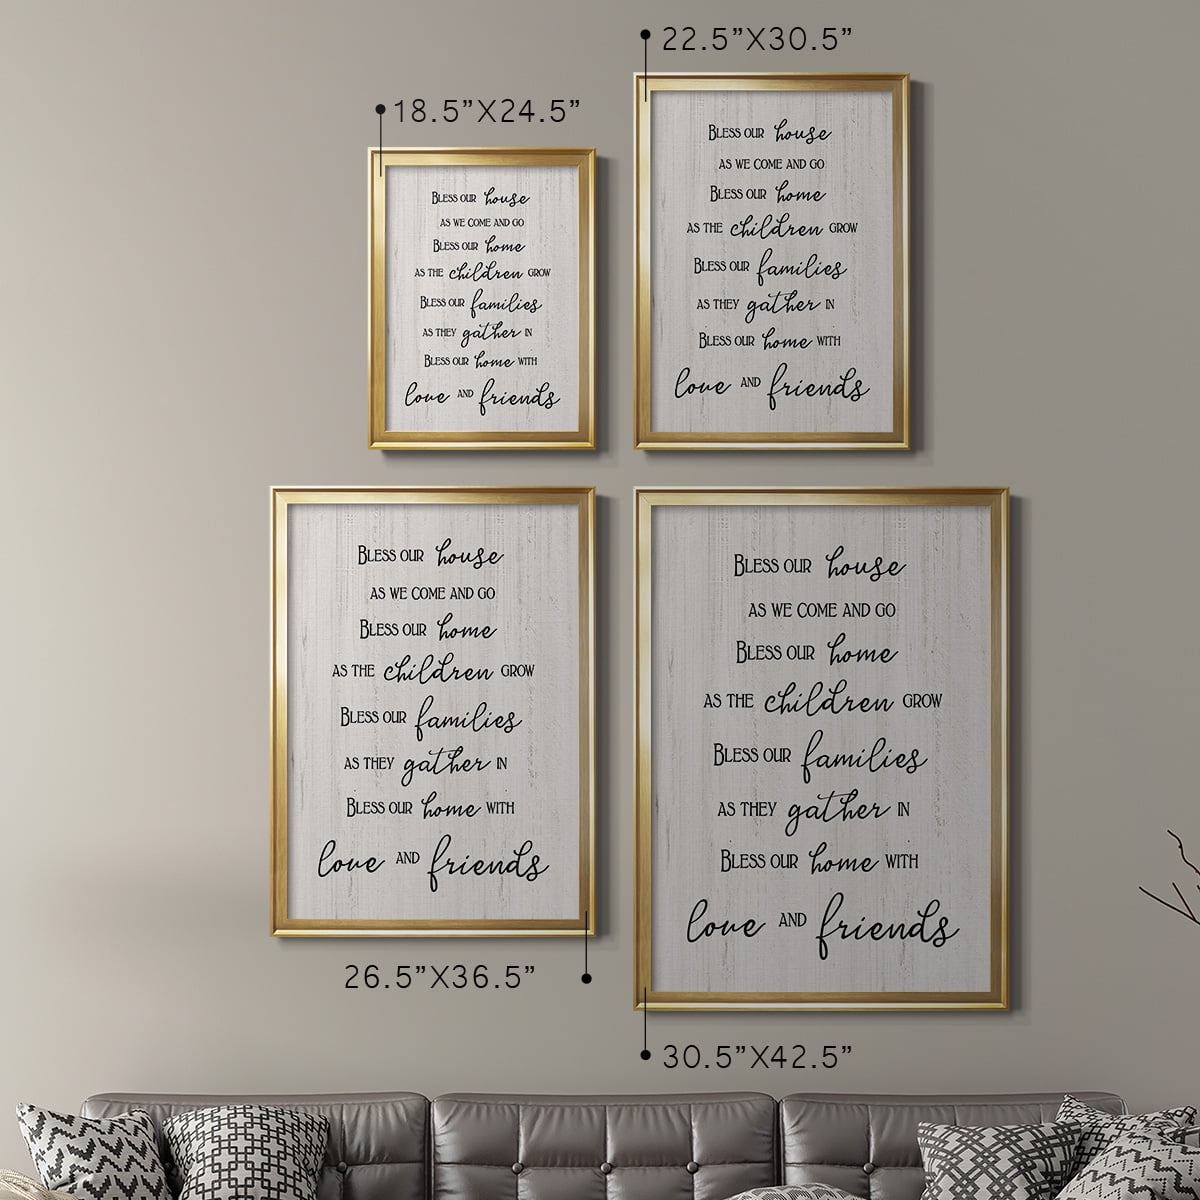 18.5”X24.5”
Bless our house
as we come and go
Bless our home
as the children grow
Bless our families
as they gather in
Bless our home with
love and friends
22.5”X30.5”
Bless our house
as we come and go
Bless our home
as the children grow
Bless our families
as they gather in
Bless our home with
love and friends
Bless our house
as we come and go
Bless our home
as the children grow
Bless our families
as they gather in
Bless our home with
love and friends
26.5”X36.5”
Bless our house
as we come and go
Bless our home
as the children grow
Bless our families
as they gather in
Bless our home with
love and friends
30.5”X42.5”